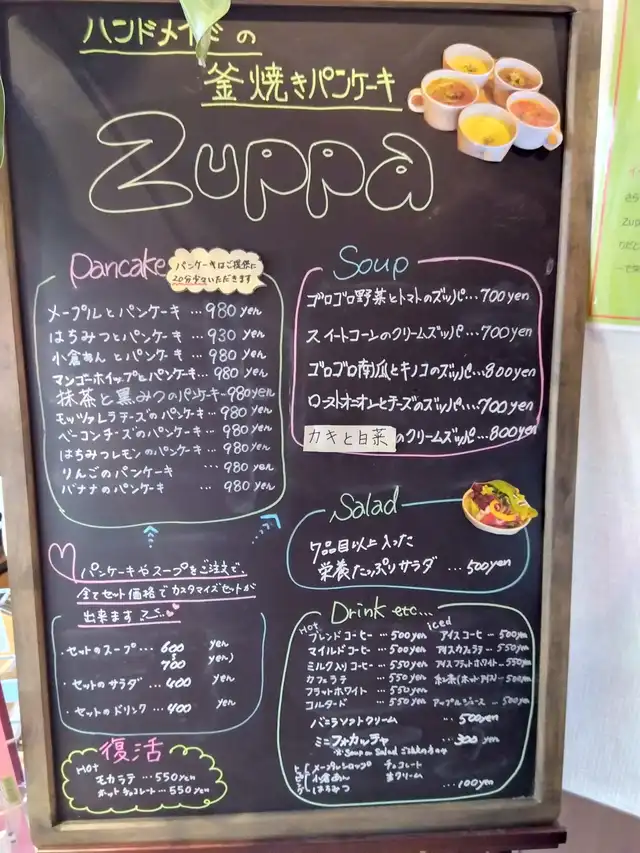 ハンドメイドの
釜焼きパンケーキ
Zuppa
Pancake
パンケーキはご提供に
20分少々いただきます
メープルとパンケーキ …980yen
はちみつとパンケーキ …930yen
小倉あんとパンケーキ …980yen
マンゴーホイップとパンケーキ…980yen
抹茶と黒みつのパンケーキ…980yen
モッツァレラチーズのパンケーキ…980yen
ベーコンチーズのパンケーキ…980yen
はちみつレモンのパンケーキ…980yen
りんごのパンケーキ …980yen
バナナのパンケーキ …980yen
Soup
ゴロゴロ野菜とトマトのズッパ…700yen
スイートコーンのクリームズッパ…700yen
ゴロゴロ南瓜とキノコのズッパ…800yen
ローストオニオンとチーズのズッパ…700yen
カキと白菜のクリームズッパ…800yen
Salad
7品目以上入った
栄養たっぷりサラダ …500yen
パンケーキやスープをご注文で、
全てセット価格でカスタマイズセットが
出来ます
・セットのスープ…600 yen
700 yen)
・セットのサラダ…400 yen
・セットのドリンク…400 yen
復活
Hot
モカラテ …550yen
ホットチョコレート…550yen
Drink etc...
Hot
ブレンドコーヒー …500yen
マイルドコーヒー …500yen
ミルク入りコーヒー…550yen
カフェラテ …550yen
フラットホワイト …550yen
コルタード …550yen
iced
アイスコーヒー …500yen
アイスカフェラテ …550yen
アイスフラットホワイト…550yen
紅茶(ホットorアイス)…500yen
アップルジュース …500yen
バニラソフトクリーム …500yen
ミニフォカッチャ …300yen
※Soup or Salad ご注文の方のみ
トッピング
メープルシロップ チョコレート
小倉あん 生クリーム
はちみつ …100yen